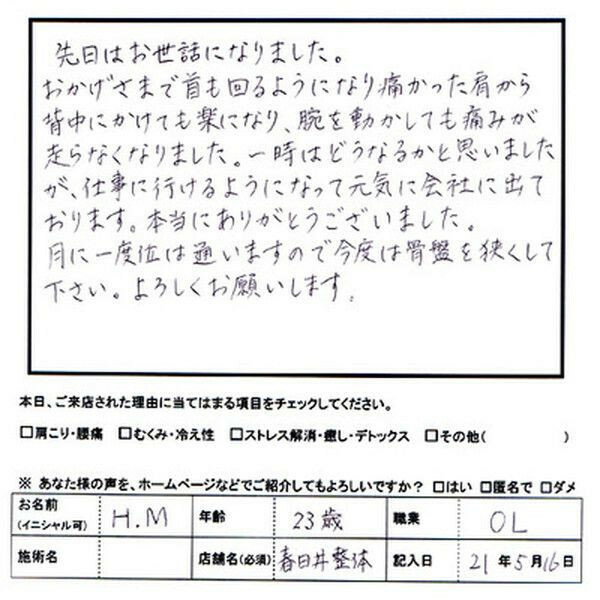 先日はお世話になりました。
おかげさまで首も回るようになり痛かった肩から
背中にかけても楽になり、腕を動かしても痛みが
走らなくなりました。一時はどうなるかと思いました
が、仕事に行けるようになって元気に会社に出て
おります。本当にありがとうございました。
月に一度位は通いますので今度は骨盤を狭くして
下さい。よろしくお願いします。
本日、ご来店された理由に当てはまる項目をチェックしてください。
□肩こり・腰痛 □むくみ・冷え性 □ストレス解消・癒し・デトックス □その他( )
※ あなた様の声を、ホームページなどでご紹介してもよろしいですか? □はい □匿名で □ダメ
お名前(イニシャル可) H.M 年齢 23歳 職業 OL
施術名 店舗名(必須) 春日井整体 記入日 21年5月16日